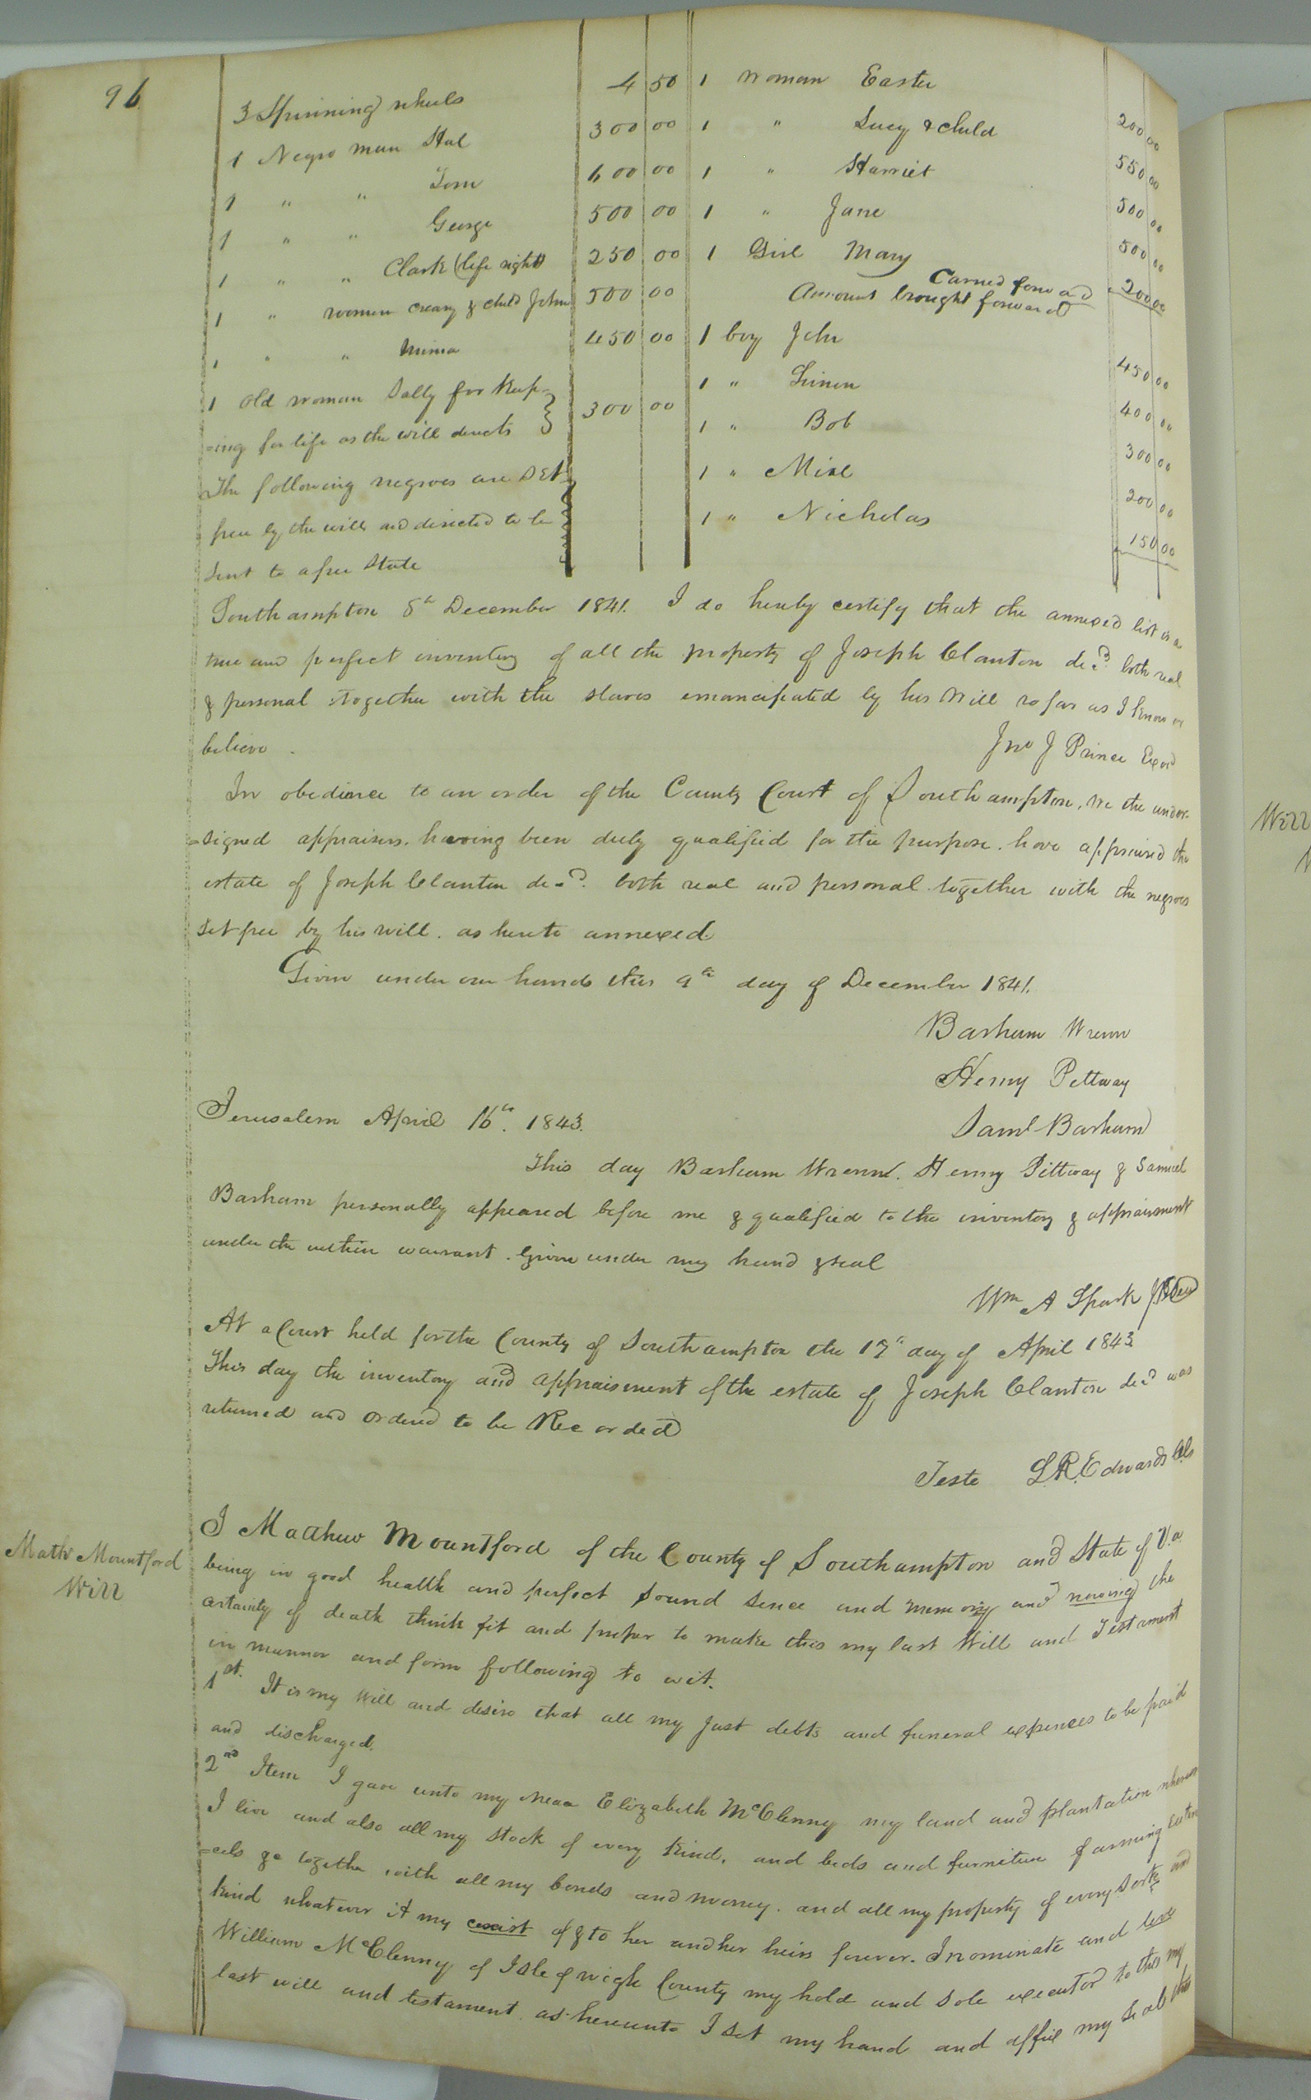 96
3 Spinning wheels 4 50
1 Negro man Hal 300 00
1 " " Tom 600 00
1 " " George 500 00
1 " " Clark (life right) 250 00
1 " woman Creasy & child John 500 00
1 " " Mima 450 00
1 old woman Sally for keep-
-ing for life as the will directs 300 00
The following negroes are set
free by the will and directed to be
sent to a free state
1 woman Easter 200 00
1 " Lucy & child 550 00
1 " Harriet 500 00
1 " Jane 500 00
1 Girl Mary 200 00
Carried forward
Amount brought forward
1 boy John 450 00
1 " Simon 400 00
1 " Bob 300 00
1 " Mike 200 00
1 " Nicholas 150 00
Southampton 8th December 1841. I do hereby certify that the annexed list is a
true and perfect inventory of all the property of Joseph Clanton decd. both real
& personal together with the slaves emancipated by his will so far as I know or
believe.
Jno J Prince Exor
In obedience to an order of the County Court of Southampton, we the under-
-signed appraisers having been duly qualified for the purpose. have appraised the
estate of Joseph Clanton decd. both real and personal together with the negroes
set free by his will. as hereto annexed
Given under our hands this 9th day of December 1841.
Barham Wrenn
Henny Pettway
Saml Barham
Jerusalem April 16th. 1843.
This day Barham Wrenn. Henny Pittway & Samuel
Barham personally appeared before me & qualified to the inventory & appraisment
under the within warrant. Given under my hand & seal
Wm A Spark JP Seal
At a Court held for the County of Southampton the 17th day of April 1843
This day the inventory and appraisement of the estate of Joseph Clanton decd was
returned and ordered to be Recorded
Teste L.R. Edwards Clk
Mathw Mountford
Will
I Matthew Mountford of the County of Southampton and State of Va.
being in good health and perfect sound sence and memory and nowing the
certainty of death think fit and proper to make this my last Will and Testament
in manner and form following to wit.
1st. It is my Will and desire that all my just debts and funeral expences to be paid
and discharged.
2nd Item I gave unto my Elizabeth McClenny my land and plantation whereon
I live and also all my stock of every kind, and beds and furniture farming
go together with all my bonds and money. and all my property of every sort and
kind whatever it my consist of & to her and her heirs forever. I nominate and
William McClenny of Isle of wigh County my hold and sole executor to this my
last will and testament. as hereunto I set my hand and affix my seal this
Will